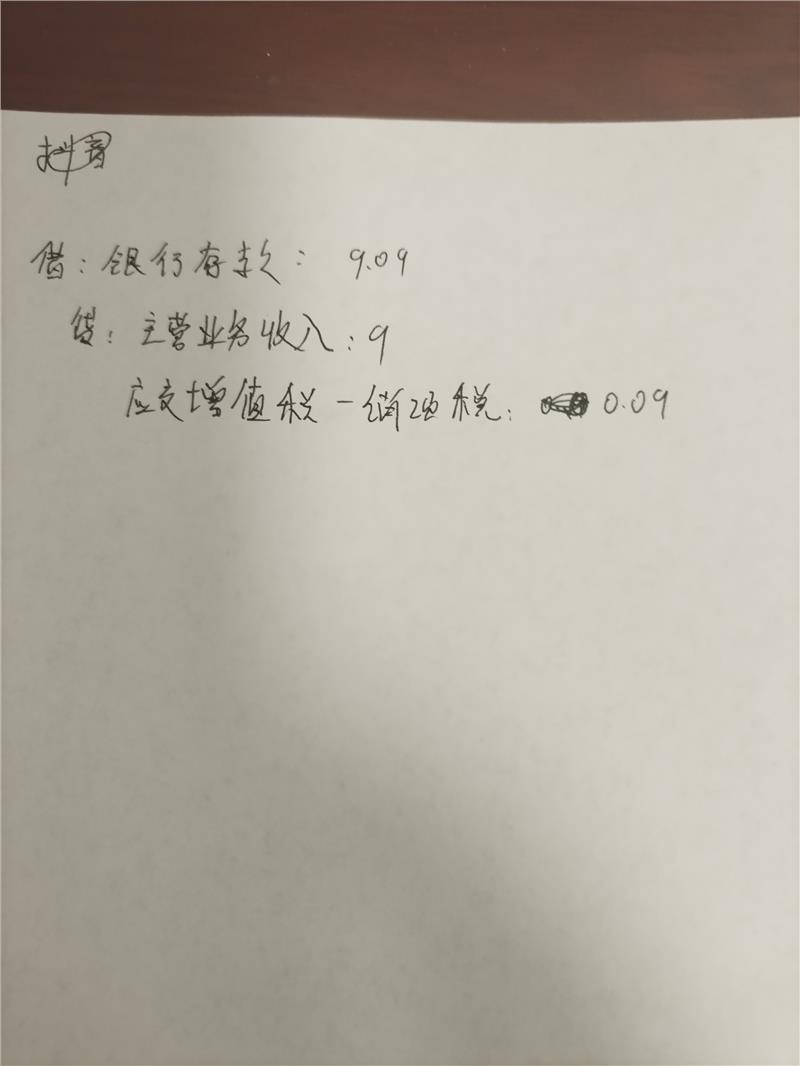 抖音
借：银行存款： 9.09
贷：主营业务收入：9
应交增值税－销项税： 0.09